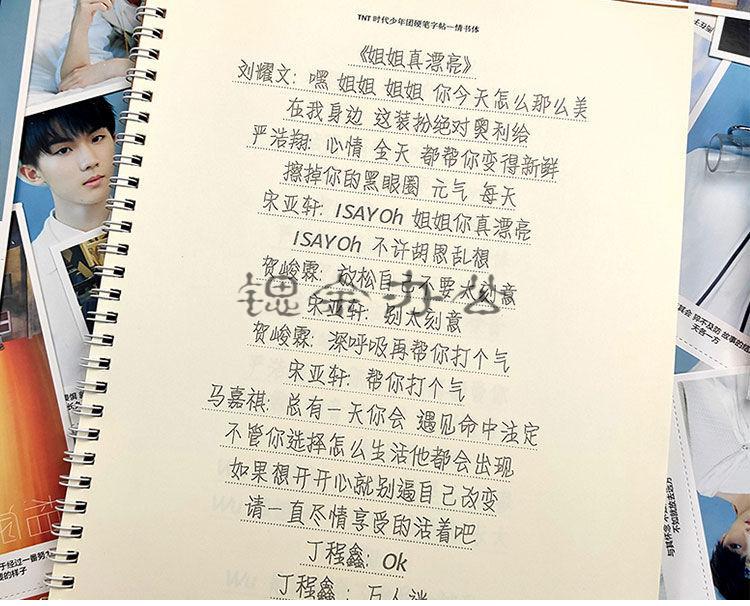 TNT 时代少年团硬笔字帖—情书体
《姐姐真漂亮》
刘耀文: 嘿 姐姐 姐姐 你今天怎么那么美
在我身边 这装扮绝对奥利给
严浩翔: 心情 全天 都帮你变得新鲜
擦掉你的黑眼圈 元气 每天
宋亚轩: ISAYOh 姐姐你真漂亮
ISAYOh 不许胡思乱想
贺峻霖: 放松自己不要太刻意
锶金办公
宋亚轩: 别太刻意
贺峻霖: 深呼吸再帮你打个气
宋亚轩: 帮你打个气
马嘉祺: 总有一天你会 遇见命中注定
不管你选择怎么生活他都会出现
如果想开开心就别逼自己改变
请一直尽情享受的活着吧
丁程鑫: Ok
丁程鑫: 万人迷
天各一方